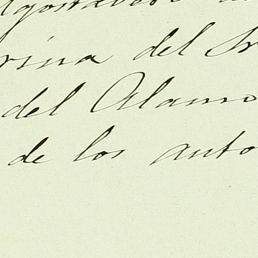 rina del Sr
del Alamo
de los auto